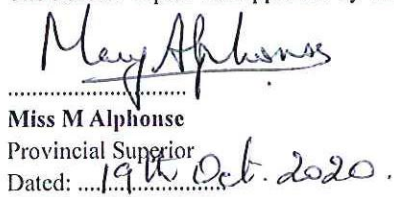 Mary Alphonse
Miss M Alphonse
Provincial Superior
Dated: 19th Oct. 2020.